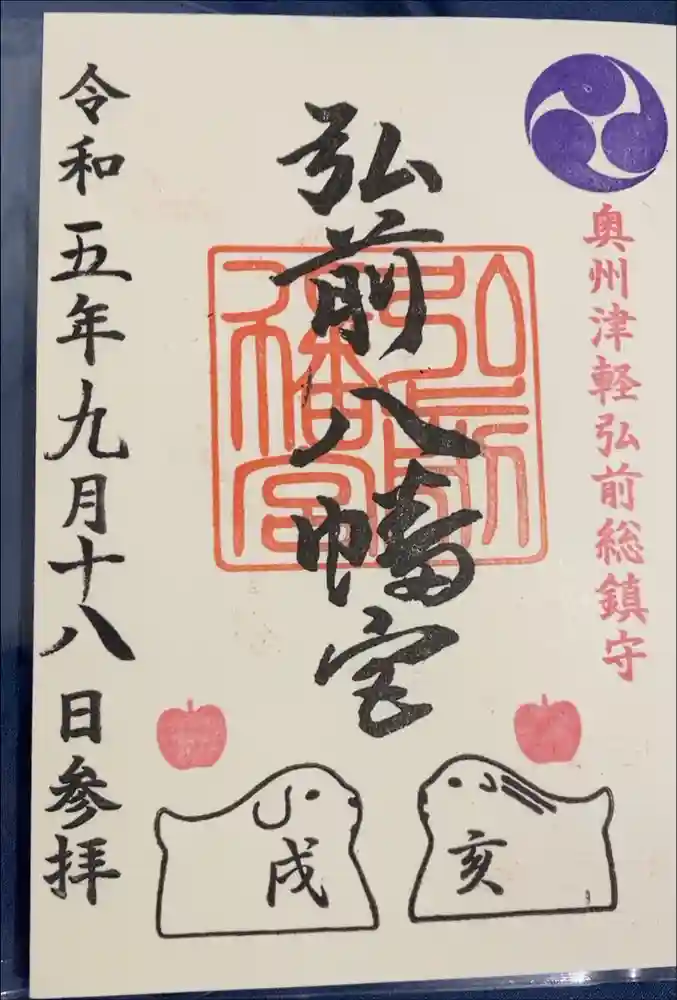 奥州津軽弘前総鎮守
弘前八幡宮
弘前八幡宮
令和五年九月十八日参拝
亥
戌